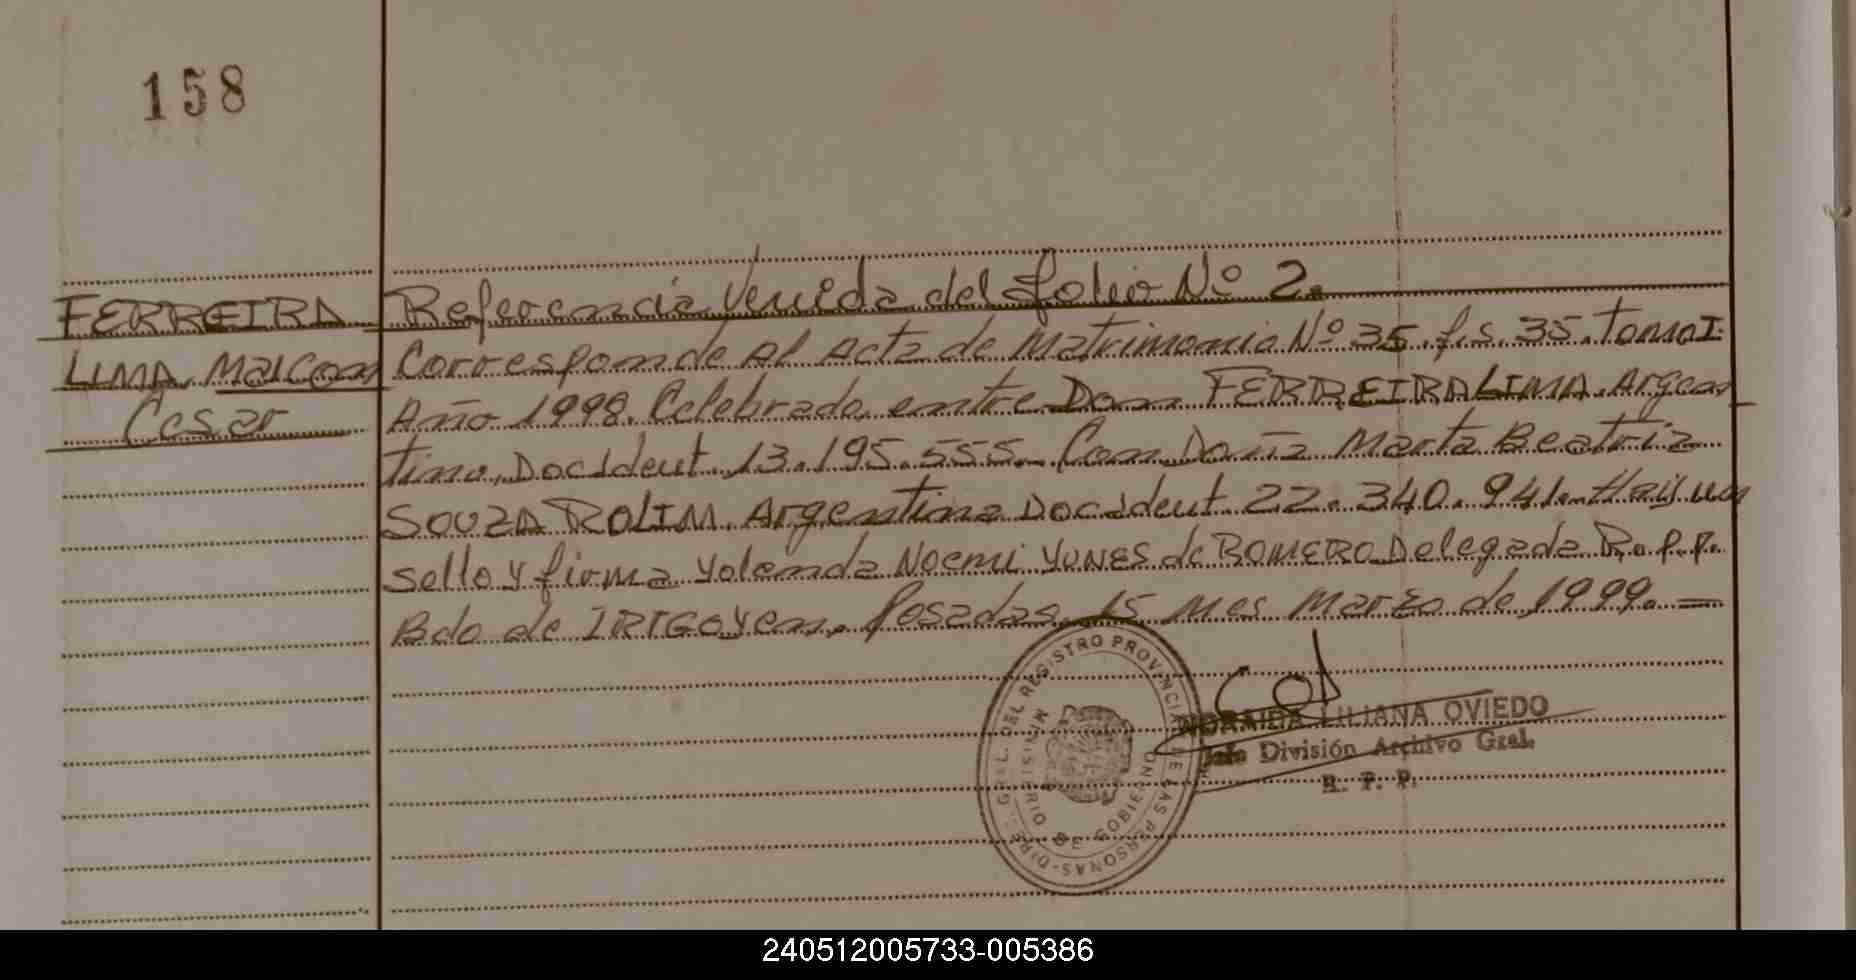 158
FERREIRA
LIMA. Malcom
Cesar
Referencia Venida del folio Nº 2.
Corresponde Al Acta de Matrimonio Nº 35. fs. 35. Tomo I.
Año 1998. Celebrado entre Don FERREIRA LIMA. Argen
tino, Doc Ident 13.195.555. Con Doña Marta Beatriz
SOUZA ROLIM. Argentina Doc Ident 22.340.941. Hay un
sello y firma Yolanda Noemi YUNES de ROMERO Delegada R.P.P.
Bdo de IRIGOYEN. Posadas, 15 Mes Marzo de 1999. —
DIREC. GRAL. DEL REGISTRO PROVINCIAL DE LAS PERSONAS
MINISTERIO DE GOBIERNO
NORAIDA LILIANA OVIEDO
Jefe División Archivo Gral.
R. P. P.
240512005733-005386